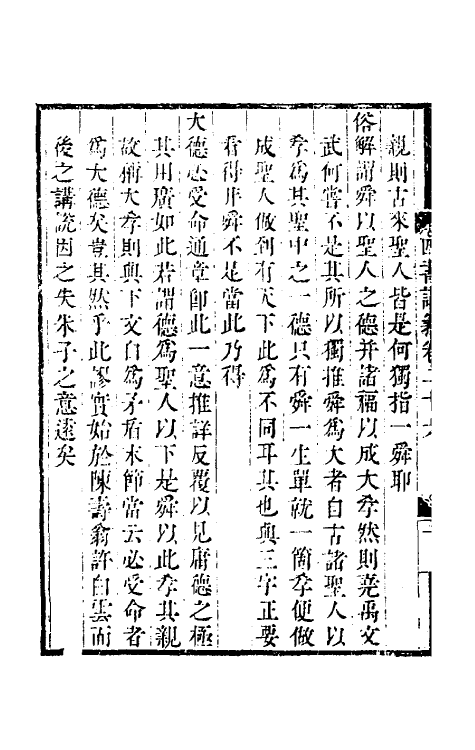 親則古來聖人皆是何獨指一舜耶
俗解謂舜以聖人之德并諸福以成大孝然則堯禹文
武何嘗不是其所以獨推舜爲大者自古諸聖人以
孝爲其聖中之一德只有舜一生單就一箇孝便做
成聖人做到有天下此爲不同耳其也與三字正要
看得非舜不足當此乃得
大德必受命通章卽此一意推詳反覆以見庸德之極
其用廣如此若謂德爲聖人以下是舜以此孝其親
故稱大孝則與下文自爲矛盾末節當云必受命者
爲大德矣豈其然乎此謬實始於陳壽翁許白雲而
後之講說因之失朱子之意遠矣
四書講義卷二十六